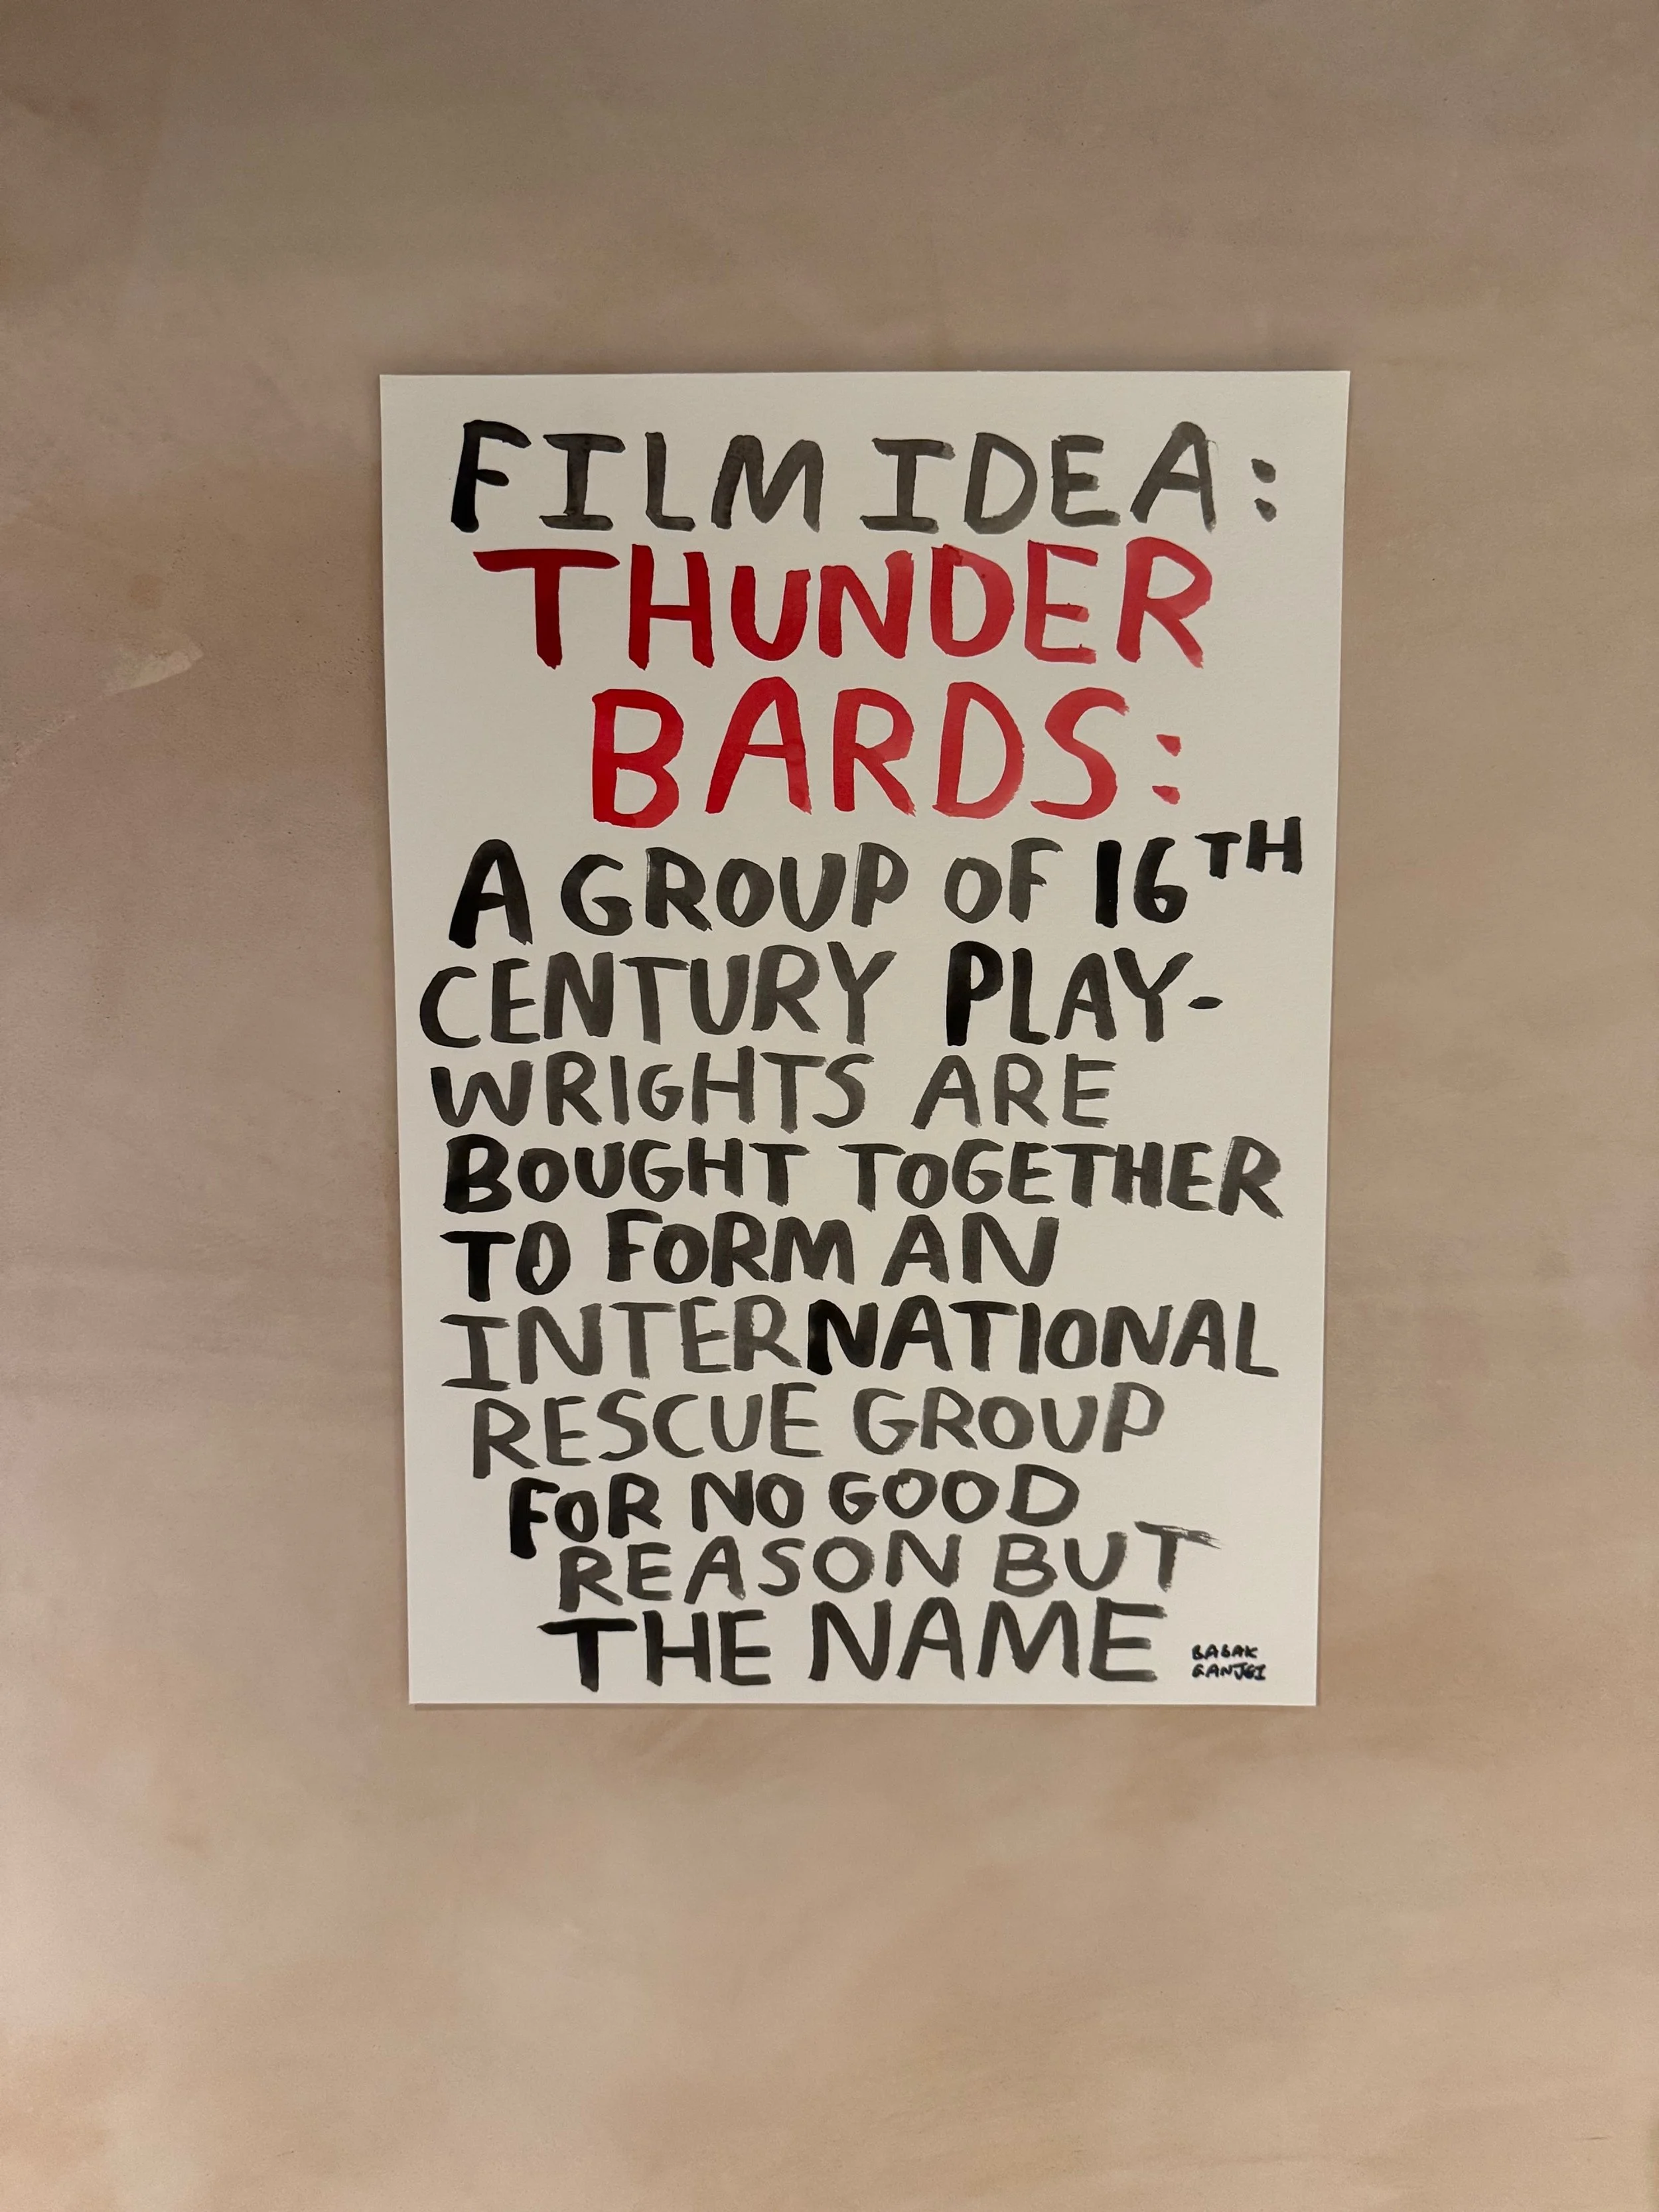 FILM IDEA:
THUNDER
BARDS:
A GROUP OF 16TH
CENTURY PLAY-
WRIGHTS ARE
BOUGHT TOGETHER
TO FORM AN
INTERNATIONAL
RESCUE GROUP
FOR NO GOOD
REASON BUT
THE NAME
BABAK
GANJEI